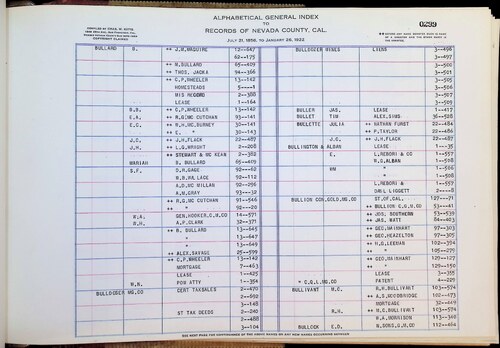 ALPHABETICAL GENERAL INDEX
TO
RECORDS OF NEVADA COUNTY, CAL.
JULY 21, 1856, TO JANUARY 26, 1922
0299
BULLARD B. ++ J.B.MAGUIRE 12--647
62--175
++ N.BULLARD 65--409
++ THOS. JACKA 94--366
++ C.P.WHEELER 13--142
HOMESTEADS 5----1
MIS RECORD 2--388
LEASE 1--164
C.P.WHEELER 13--142
++ R.G.MC CUTCHAN 93--141
++ W.H.MC.BURNEY 30--141
++ E. " 30--143
J.C. ++ J.H.FLACK 22--487
J.H. ++ L.Q.WRIGHT 2--208
++ STEWART & MC KEAN 2--362
MARIAH B. BULLARD 65--409
S.F. D.R.GAGE 92---62
W.B.WALLACE 92--112
A.D.MC MILLAN 92--256
A.M.GRAY 93---32
++ R.G.MC CUTCHAN 91--546
++ " 92---20
W.A. GEN.HOOKER.G.M.CO 14--571
W.H. A.P.CLARK 32--371
++ N. BULLARD 13--645
++ " 13--647
++ " 13--649
++ ALEX.SAVAGE 25--599
++ C.P.WHEELER 13--142
MORTGAGE 7--463
LEASE 1--425
W.N. POW ATTY 1--354
BULLDOGER MG.CO CERT TAXSALES 2--470
2--692
3--148
ST TAX DEEDS 2--240
3--488
3--104
BULLDOGER MINES LIENS 3--496
3--497
3--500
3--501
3--505
3--506
3--503
3--509
BULLER JAS. LEASE 1--417
BULLET TIM ALEX.KING 36--528
BULLETTE JULIA ++ NATHAN FURST 22--484
++ P.TAYLOR 22--486
J.C. ++ J.H.FLACK 22--487
BULLINGTON & ALBAN LEASE 1---35
E. L.REBORI & CO 1--557
WM W.G.ALBAN 1--508
" 1--586
" 1--508
L.REBORI & 1--557
DRILL LIGGETT 2---8
BULLION CON.GOLD.MG.CO ST.OF.CAL. 127---71
++ BULLION C.G.M.CO 53---41
++ JOS. SOUTHERN 53--539
++ JAS. WATT 84--403
++ GEO.MAINHART 97--303
++ GEO.HAZELTON 97--305
++ H.G.LEEMAN 102--394
++ " 105--279
++ GEO.MAINHART 129--127
++ " 129--150
LEASE 3--355
" C.Q.L.MG.CO PATENT 4--229
BULLIVANT M.C. R.H.BULLIVANT 103--574
++ A.S.GOODBRIDGE 102--473
MORTGAGE 32--449
R.H. ++ M.C.BULLIVANT 103--574
W.A.MORRISON 113--302
BULLOCK E.D. N.BONG.Q.M.CO 112--464